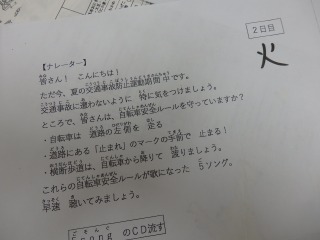 ２日目
火
【ナレーター】
皆さん！　こんにちは！
ただ今、夏の交通事故防止運動期間中です。
交通事故に遭わないように　特に気をつけましょう。
ところで、皆さんは、自転車安全ルールを守っていますか？
・自転車は　道路の左側を　走る
・道路にある「止まれ」のマークの手前で　止まる！
・横断歩道は、自転車から降りて　渡りましょう。
これらの自転車安全ルールが歌になった　５ソング。
早速　聴いてみましょう。
５ｓｏｎｇ　のCD流す